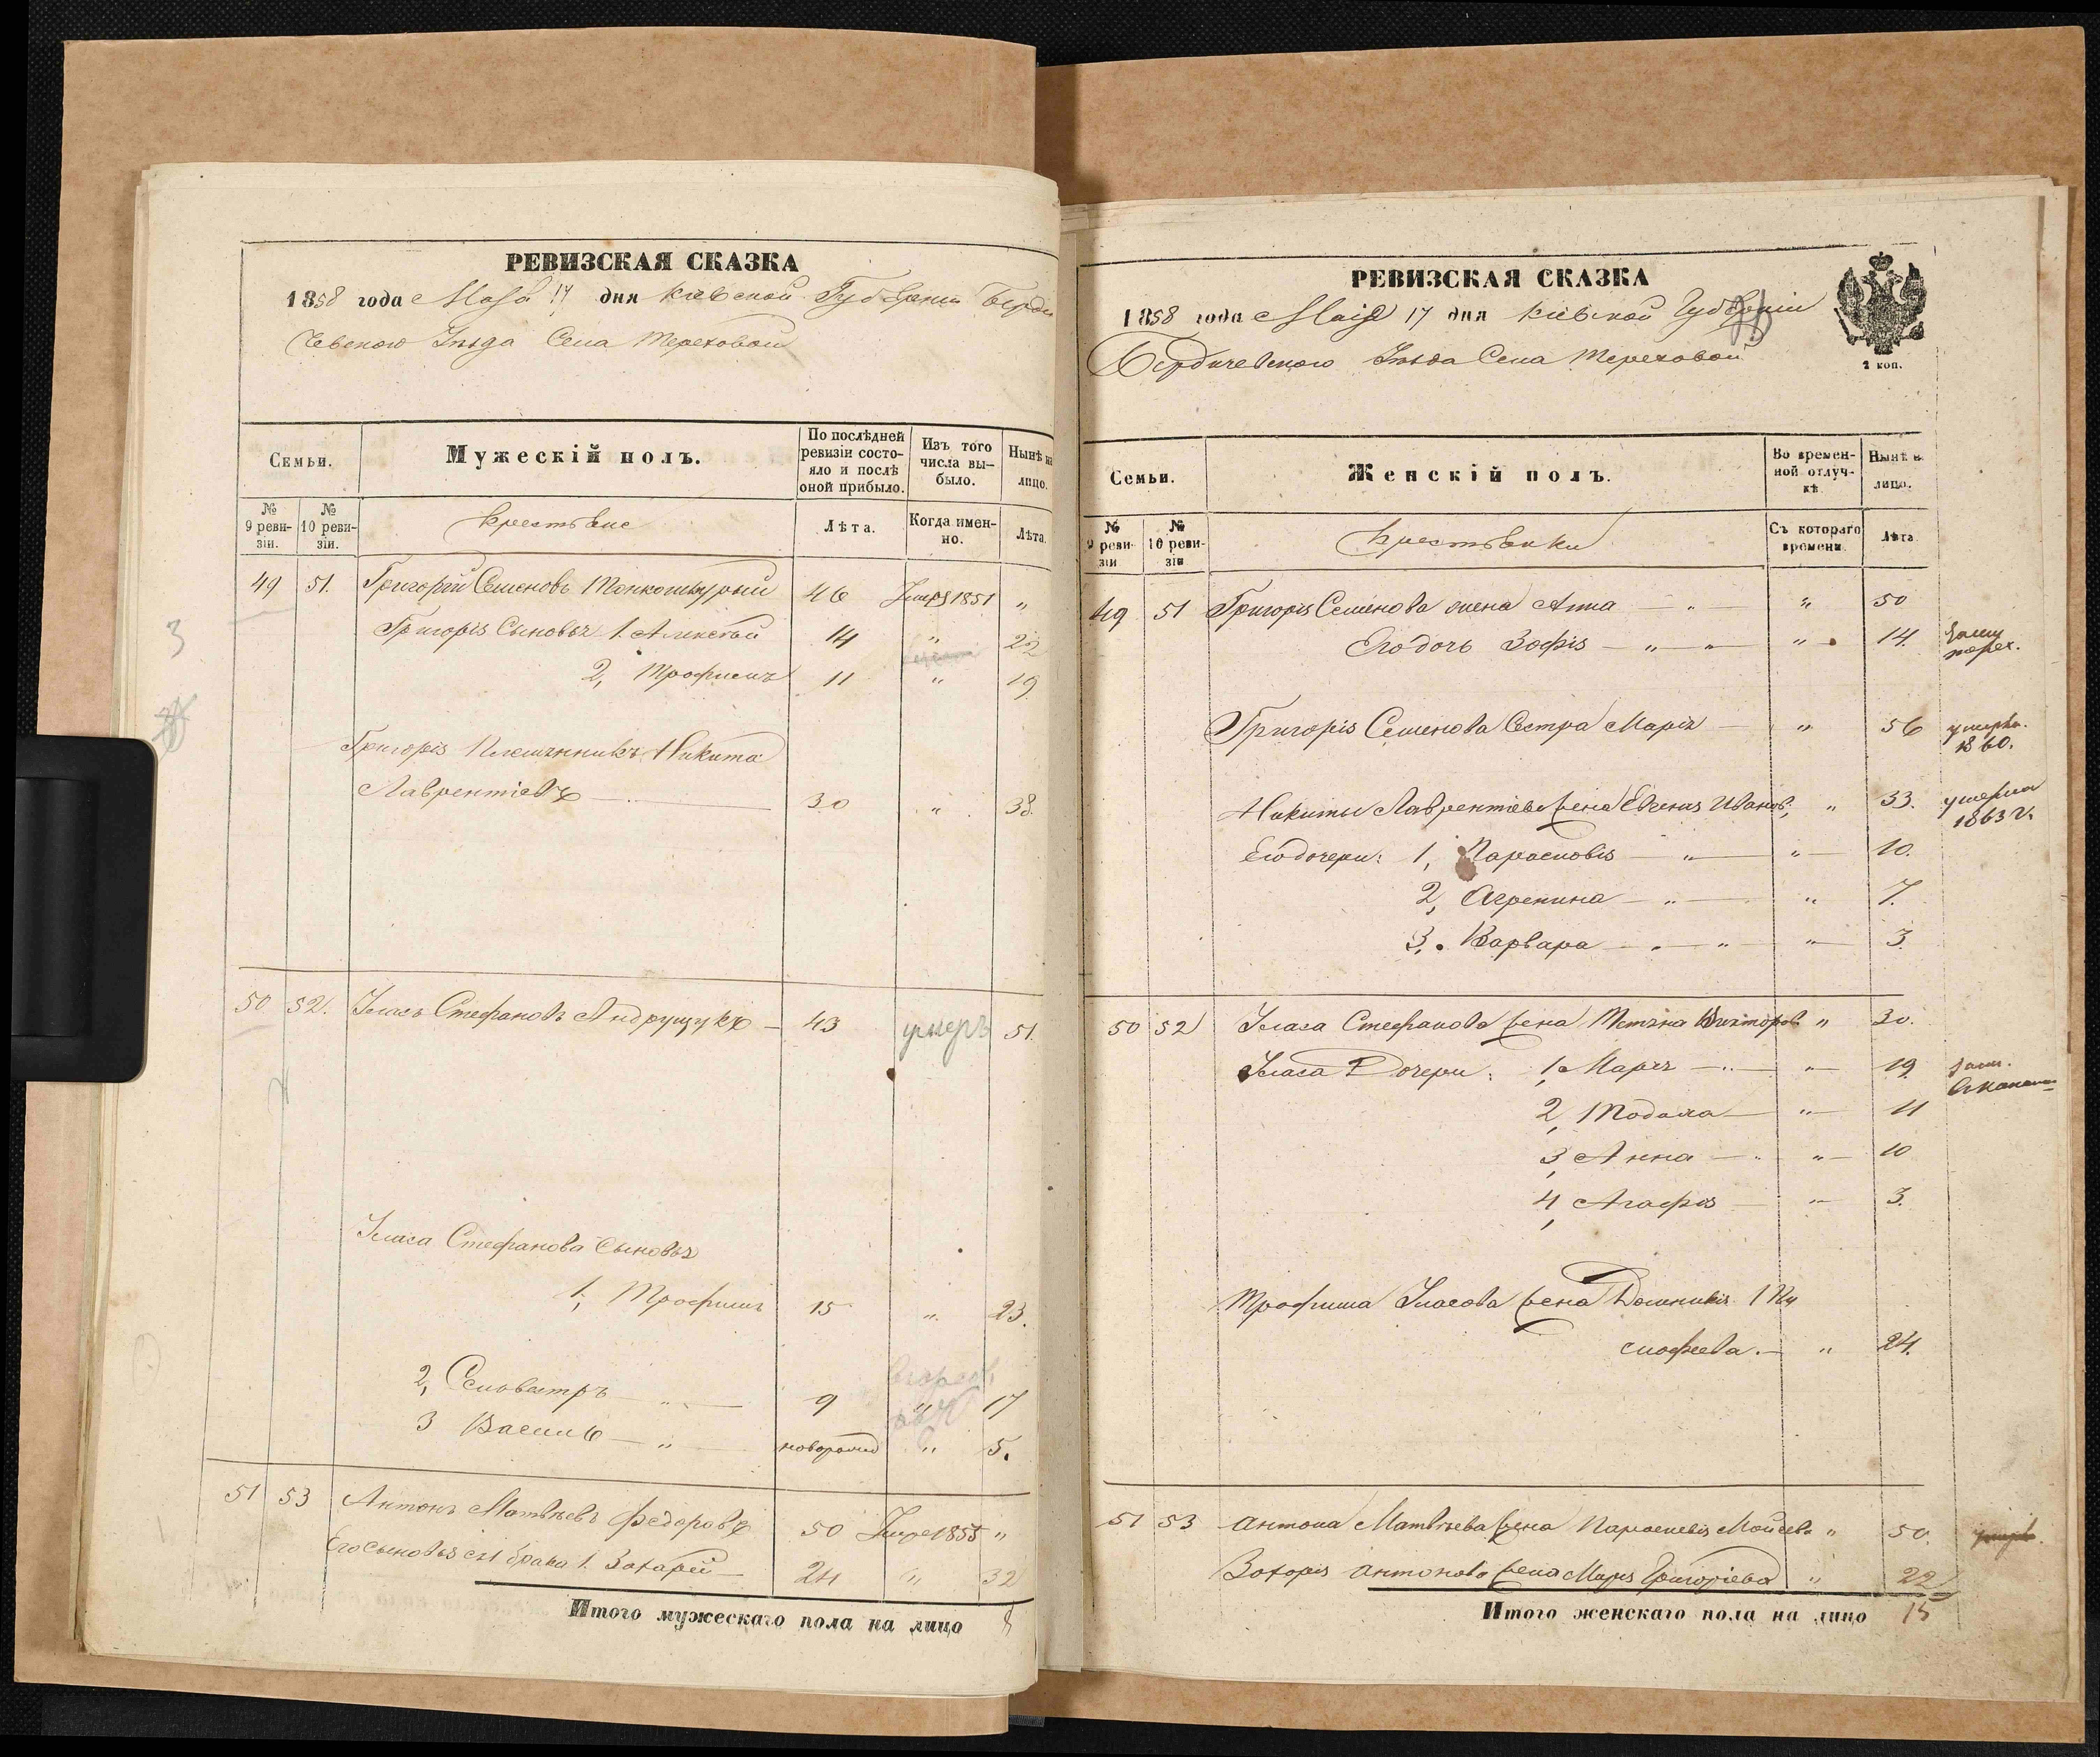 РЕВИЗСКАЯ СКАЗКА
1858 года Маія 17 дня Кіевской Губерніи Берди
чевского Уезда Села Тереховой
Семьи.
Мужескій полъ.
По послѣдней ревизіи состояло и послѣ оной прибыло.
Изъ того числа выбыло.
Нынѣ на лицо.
№ 9 ревизіи.
№ 10 ревизіи.
Крестьяне
Лѣта.
Когда именно.
Лѣта.
49 51. Григорій Семеновъ 46 Умеръ 1851 "
Григорія Сыновья 1. Алексѣй 14 " 22
2, Трофимъ 11 " 19
Григорія Племянникъ Никита
Лаврентіевъ 30 " 38.
50 52. Стефановъ Андрущукъ 43 умеръ 51.
Стефанова Сыновья
1, Трофимъ 15 " 23.
2, Селовестръ 9 " 17
3 Василь " новорожд " 5.
51 53 Антонъ Матвѣевъ Федоровъ 50 Умре 1855 "
Его сыновья 1. Захарій 24 " 32
Итого мужескаго пола на лицо 8
3
РЕВИЗСКАЯ СКАЗКА
1858 года Маія 17 дня Кіевской Губерніи
Бердичевского Уезда Села Тереховой
2 коп.
Семьи.
Женскій полъ.
Во временной отлучкѣ
Нынѣ на лицо.
№ 9 ревизіи
№ 10 ревизіи
Крестьянки
Съ котораго времени.
Лѣта
49 51 Григорія Семенова жена Анна " " 50
Его дочь Зофія " " 14. замуж
Григорія Семенова Сестра Марія " 56 умерла 1860.
Никиты Лаврентіева жена Евгенія Иванов. " 33. умерла 1863 г.
Его дочери: 1, Парасковія " " 10.
2, Агрепина " " 7.
3, Варвара " " 3.
50 52 Стефанова жена Викторов. " 30.
Дочери: 1, Марія " " 19. зам.
2, Тодоха " 11
3, Анна " " 10
4, Агафія " 3.
Трофима жена Доминикія Ти
мофеева. " 24.
51 53 Антона Матвѣева жена Параскевія Мойсева " 50.
Захарія Антонова жена Марія Григоріева " 22
Итого женскаго пола на лицо 15